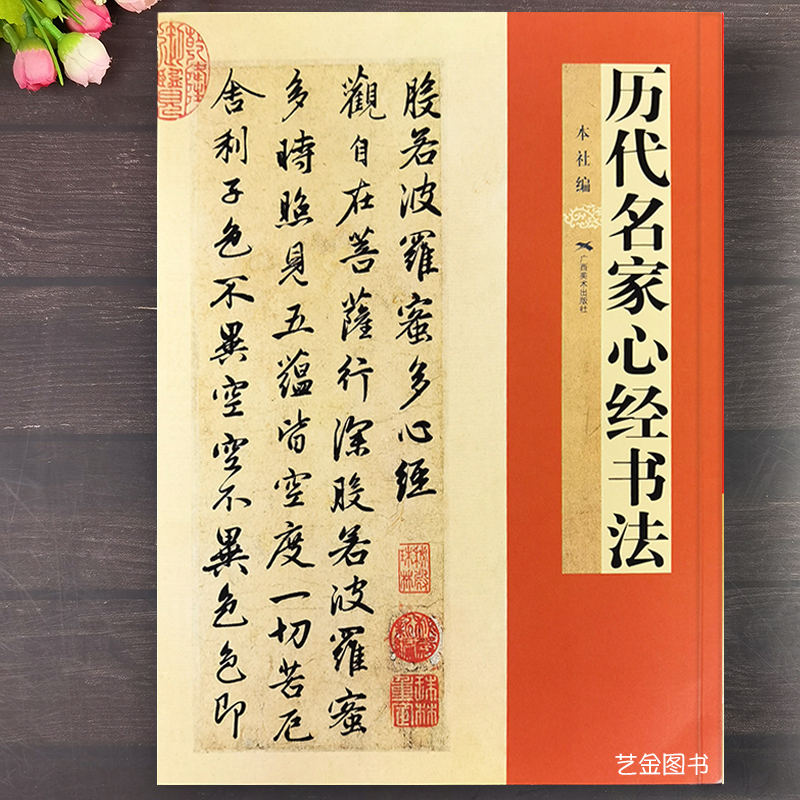 历代名家心经书法
本社编
广西美术出版社
般若波羅蜜多心經
觀自在菩薩行深般若波羅蜜
多時照見五蘊皆空度一切苦厄
舍利子色不異空空不異色色即
艺金图书